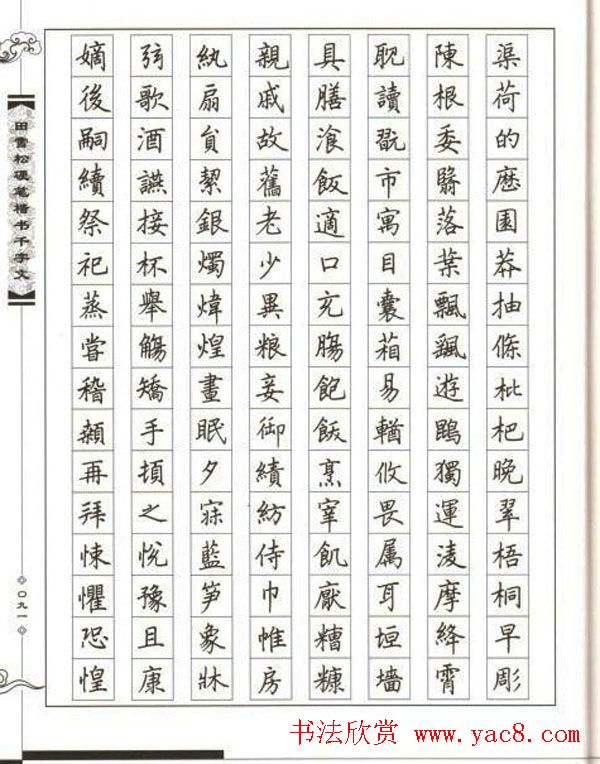 渠荷的歷園莽抽條枇杷晚翠梧桐早彫
陳根委翳落葉飄颻遊鵾獨運淩摩絳霄
耽讀翫市寓目囊箱易輶攸畏属耳垣墻
具膳飡飯適口充腸飽飫烹宰飢厭糟糠
親戚故舊老少異粮妾御績紡侍巾帷房
紈扇貟潔銀燭煒煌晝眠夕寐藍笋象牀
弦歌酒讌接杯舉觴矯手頓之悦豫且康
嫡後嗣續祭祀蒸嘗稽顙再拜悚懼恐惶
田雪松硬笔楷书千字文
〇九一
书法欣赏 www.yac8.com